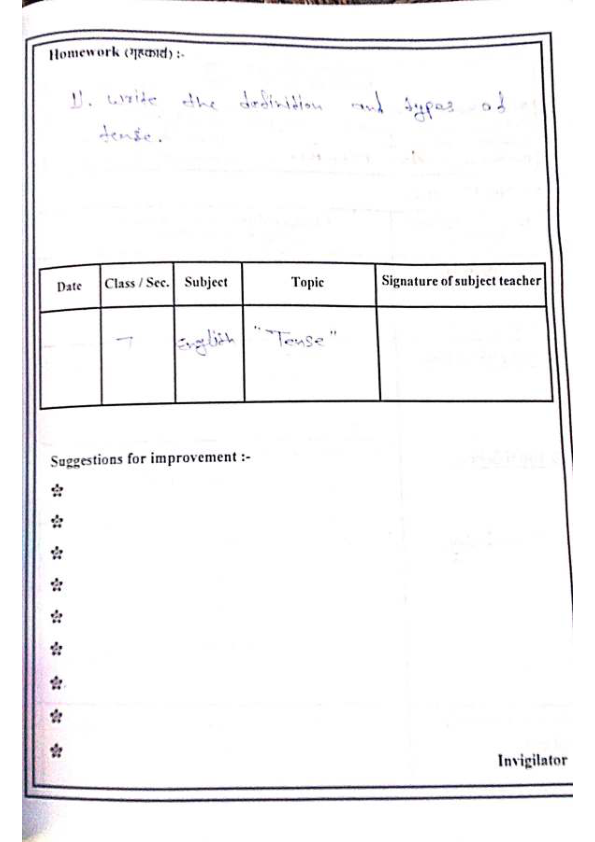 Homework (गृहकार्य) :-
1). write the definition and types of
tense.
Date Class / Sec. Subject Topic Signature of subject teacher
7 English "Tense"
Suggestions for improvement :-
Invigilator